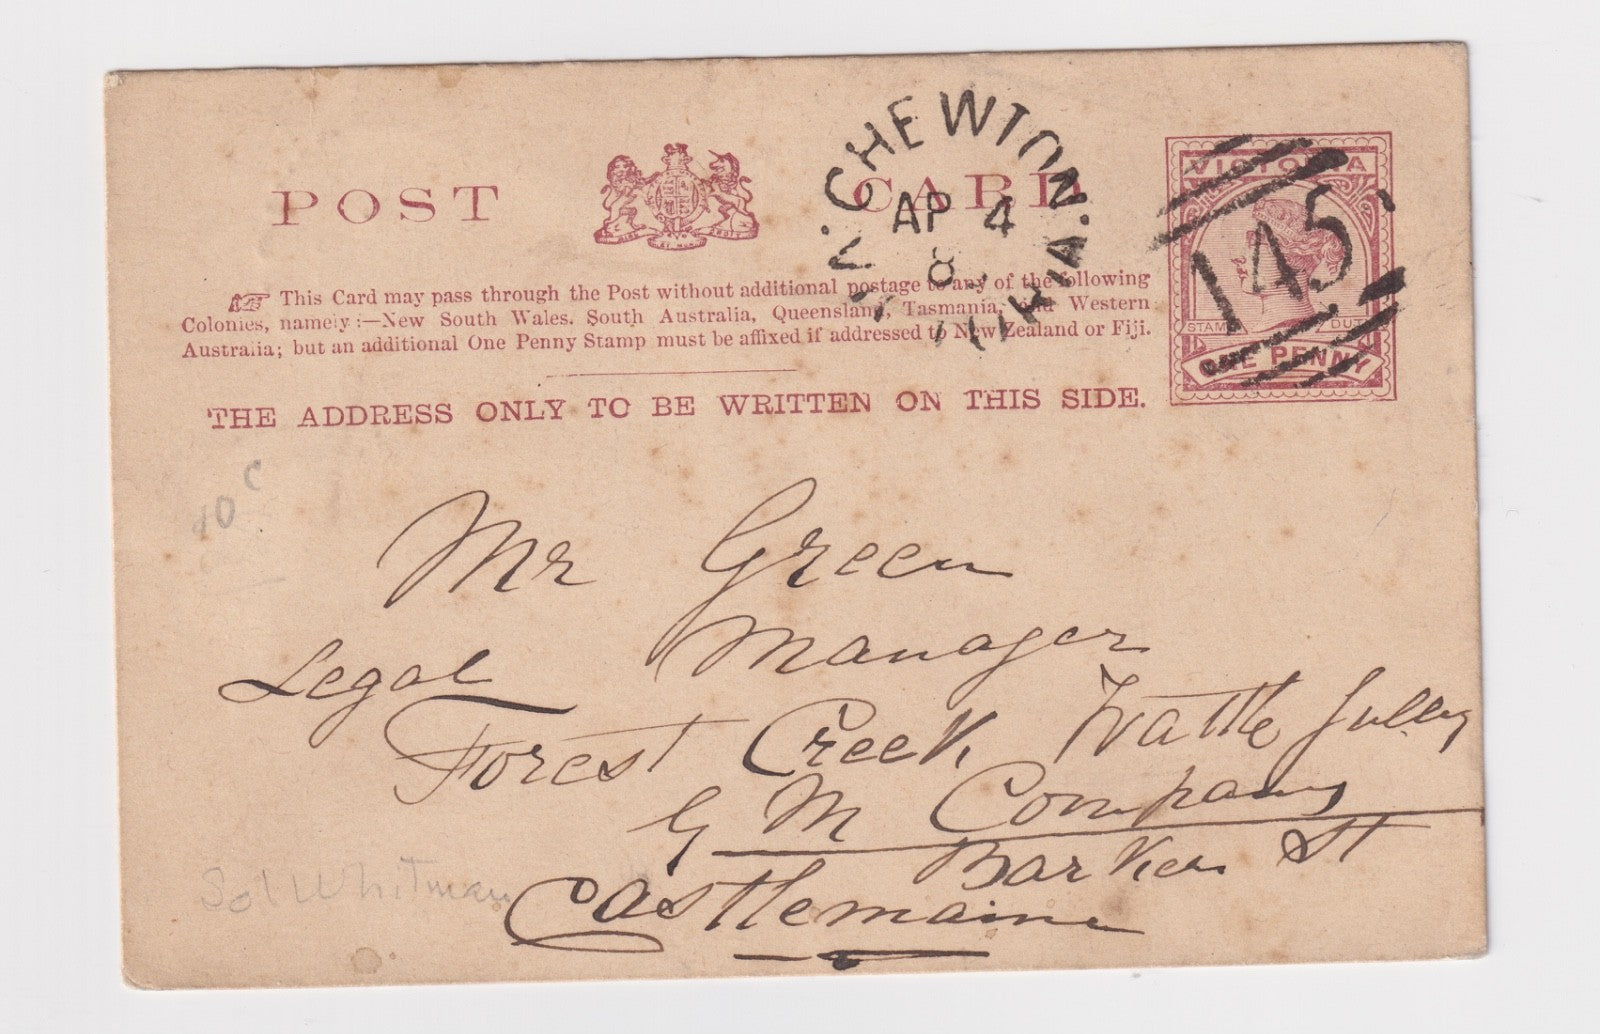 POST CARD
CHEWTON
AP 4
8
VICTORIA
145
STAMP DUTY
ONE PENNY
This Card may pass through the Post without additional postage to any of the following
Colonies, namely:—New South Wales, South Australia, Queensland, Tasmania, and Western
Australia; but an additional One Penny Stamp must be affixed if addressed to New Zealand or Fiji.
THE ADDRESS ONLY TO BE WRITTEN ON THIS SIDE.
10c
Mr Green
Legal Manager
Forest Creek Wattle Gully
G M Company
Barker St
Castlemaine
Sol Whitman